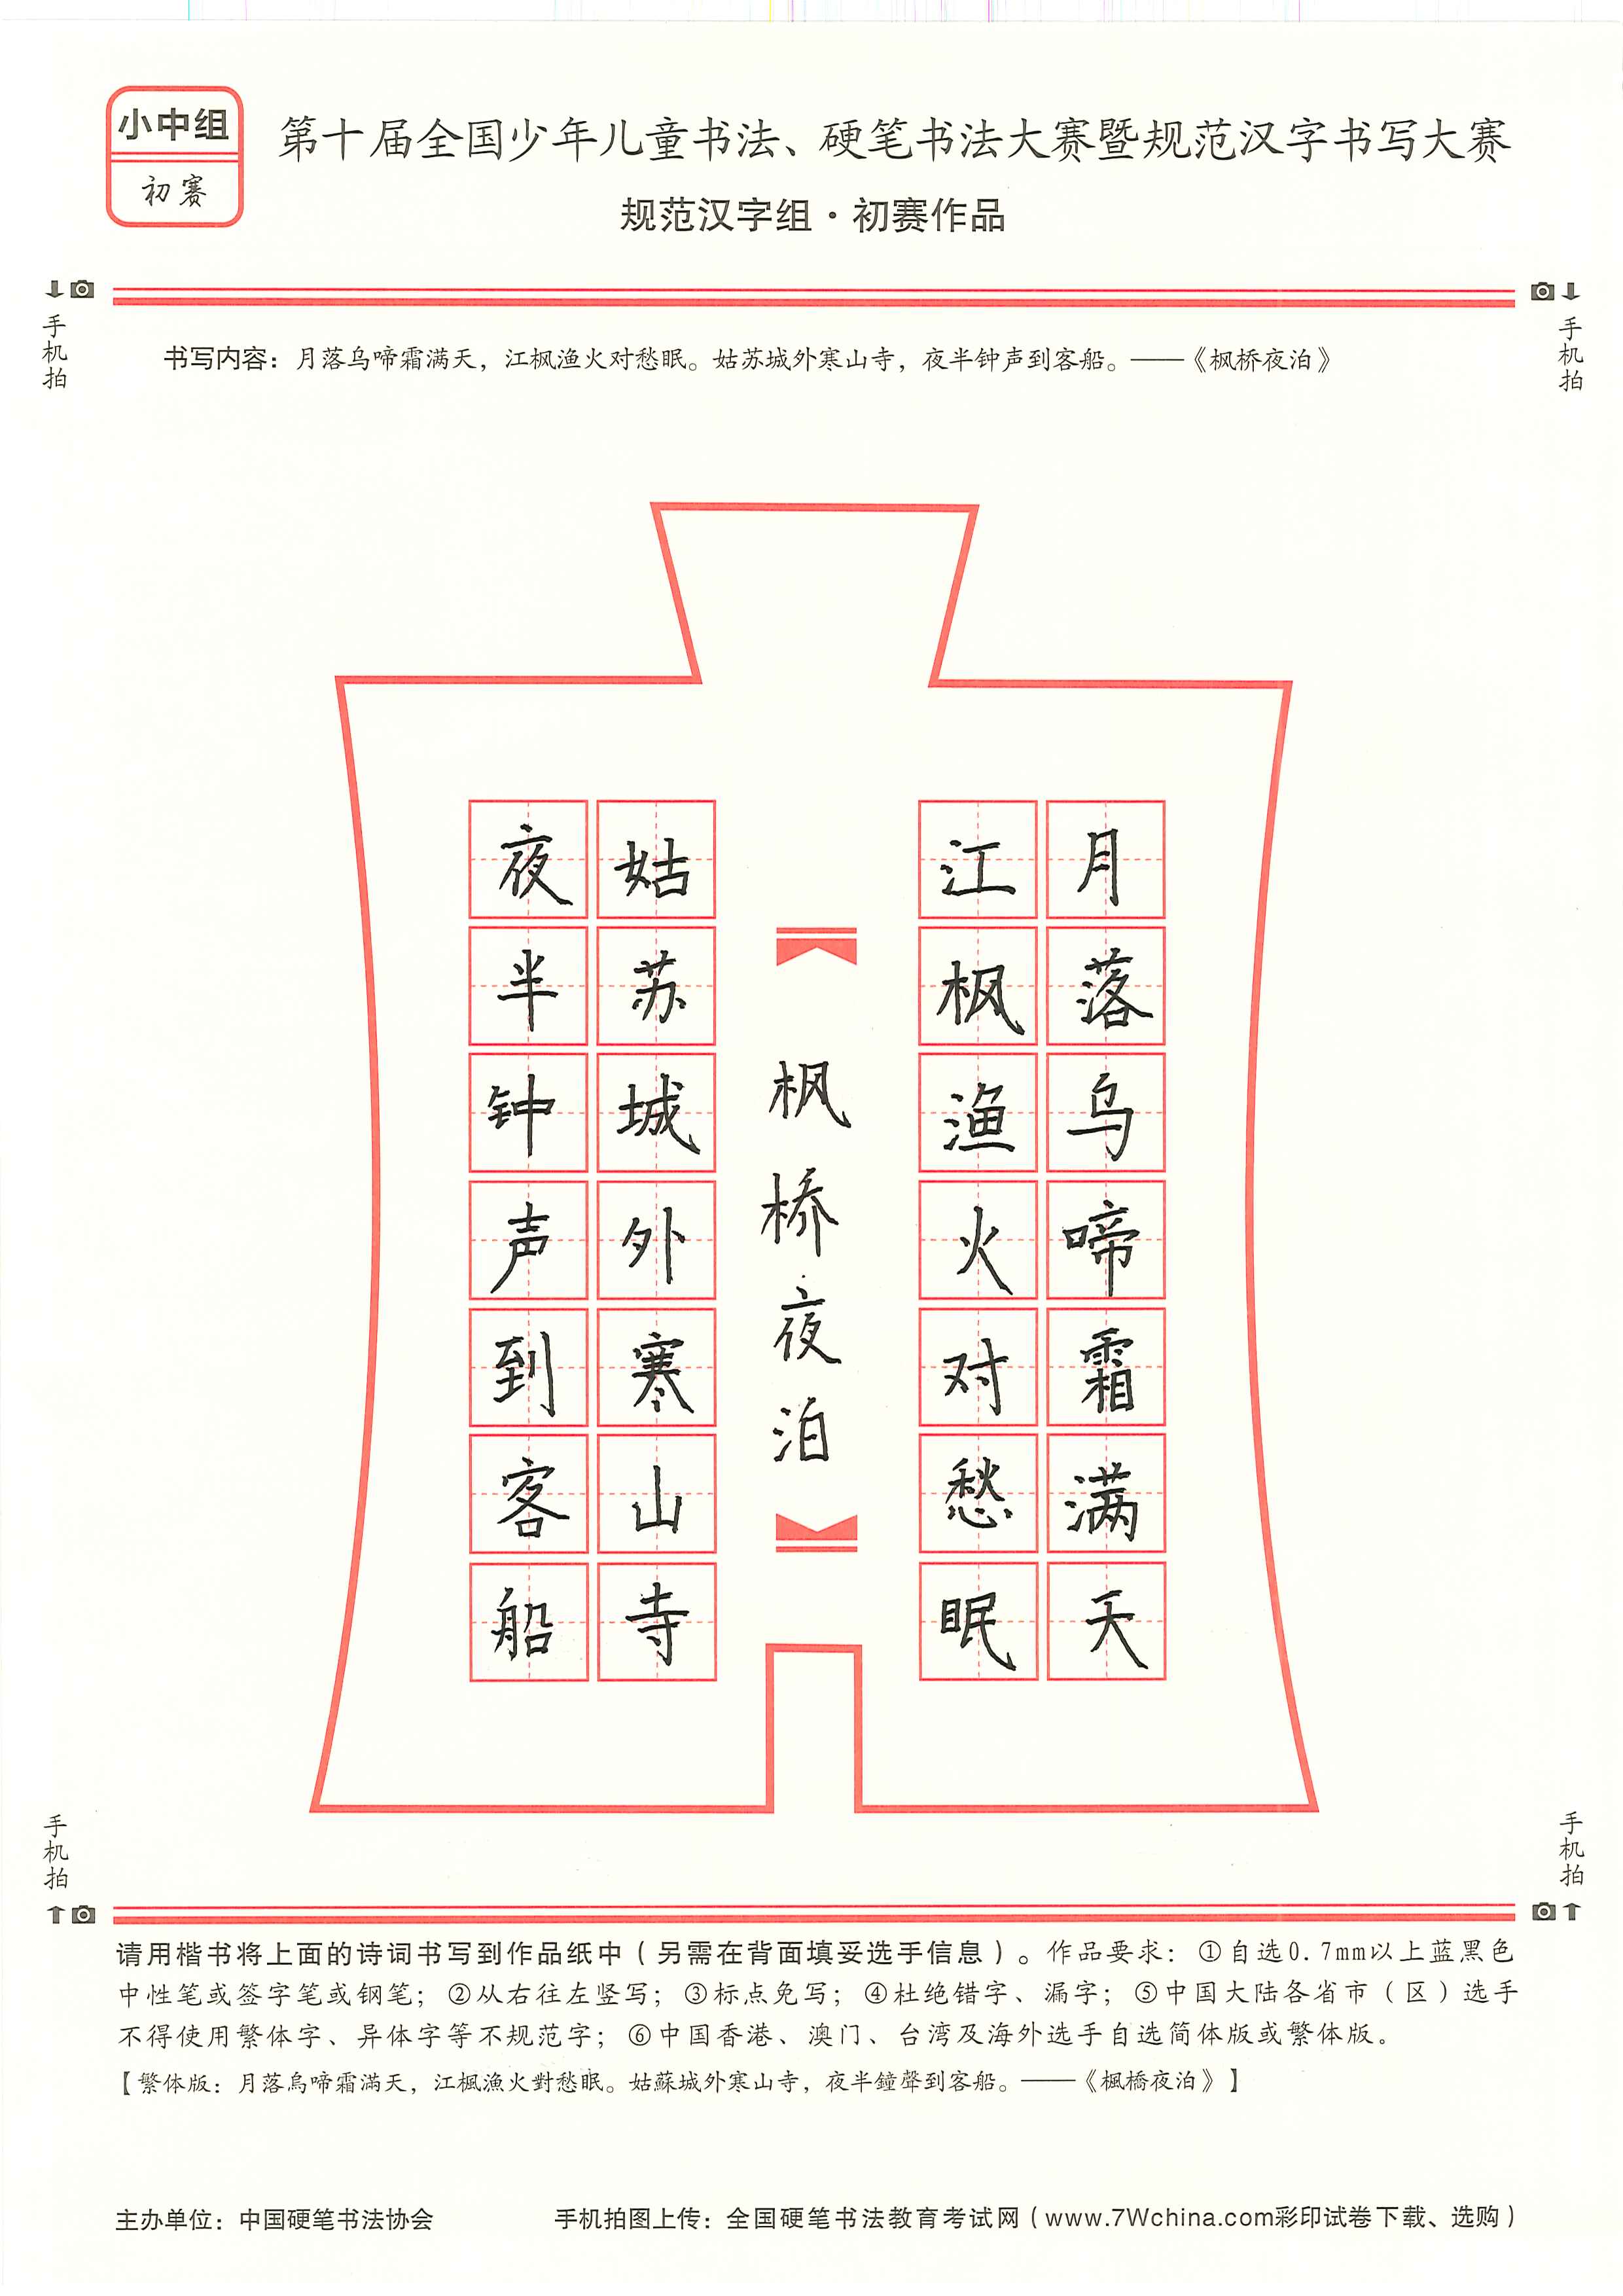 小中组
初赛
第十届全国少年儿童书法、硬笔书法大赛暨规范汉字书写大赛
规范汉字组·初赛作品
手机拍
手机拍
书写内容：月落乌啼霜满天，江枫渔火对愁眠。姑苏城外寒山寺，夜半钟声到客船。——《枫桥夜泊》
月落乌啼霜满天
江枫渔火对愁眠
枫桥夜泊
姑苏城外寒山寺
夜半钟声到客船
手机拍
手机拍
请用楷书将上面的诗词书写到作品纸中（另需在背面填妥选手信息）。作品要求：①自选0.7mm以上蓝黑色
中性笔或签字笔或钢笔；②从右往左竖写；③标点免写；④杜绝错字、漏字；⑤中国大陆各省市（区）选手
不得使用繁体字、异体字等不规范字；⑥中国香港、澳门、台湾及海外选手自选简体版或繁体版。
【繁体版：月落烏啼霜滿天，江楓漁火對愁眠。姑蘇城外寒山寺，夜半鐘聲到客船。——《楓橋夜泊》】
主办单位：中国硬笔书法协会
手机拍图上传：全国硬笔书法教育考试网（www.7Wchina.com彩印试卷下载、选购）